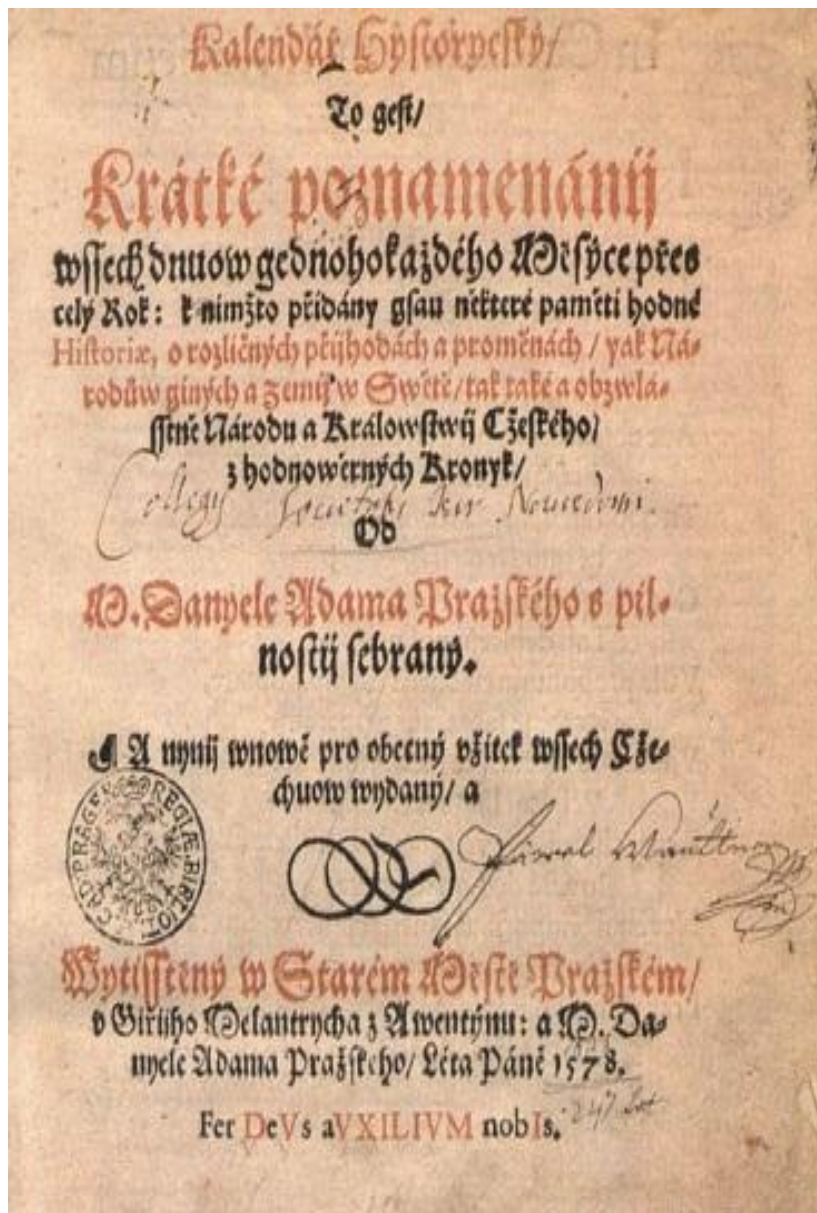 Kalendář Hystorycský/
To gest/
Krátké poznamenánij
wssech dnuow gednohokaždého Měsýce přes
celý Rok: k nimžto přidány gsau některé paměti hodné
Historiæ, o rozličných přijhodách a proměnách / yak Ná-
rodůw giných a zemij w Swětě/ tak také a obzwlá-
sstně Národu a Králowstwij Cžeského/
z hodnowěrných Kronyk/
Collegij
Od
M. Danyele Adama Pražského s pil-
nostij sebraný.
A nynij wnowě pro obecný vžitek wssech Cže-
chuow wydaný/ a
CAES. REGIÆ. BIBLIOT.
Wytisstěný w Starém Městě Pražském/
v Giřijho Melantrycha z Awentýnu: a M. Da-
nyele Adama Pražského/ Léta Páně 1578.
Fer DeVs aVXILIVM nobIs.